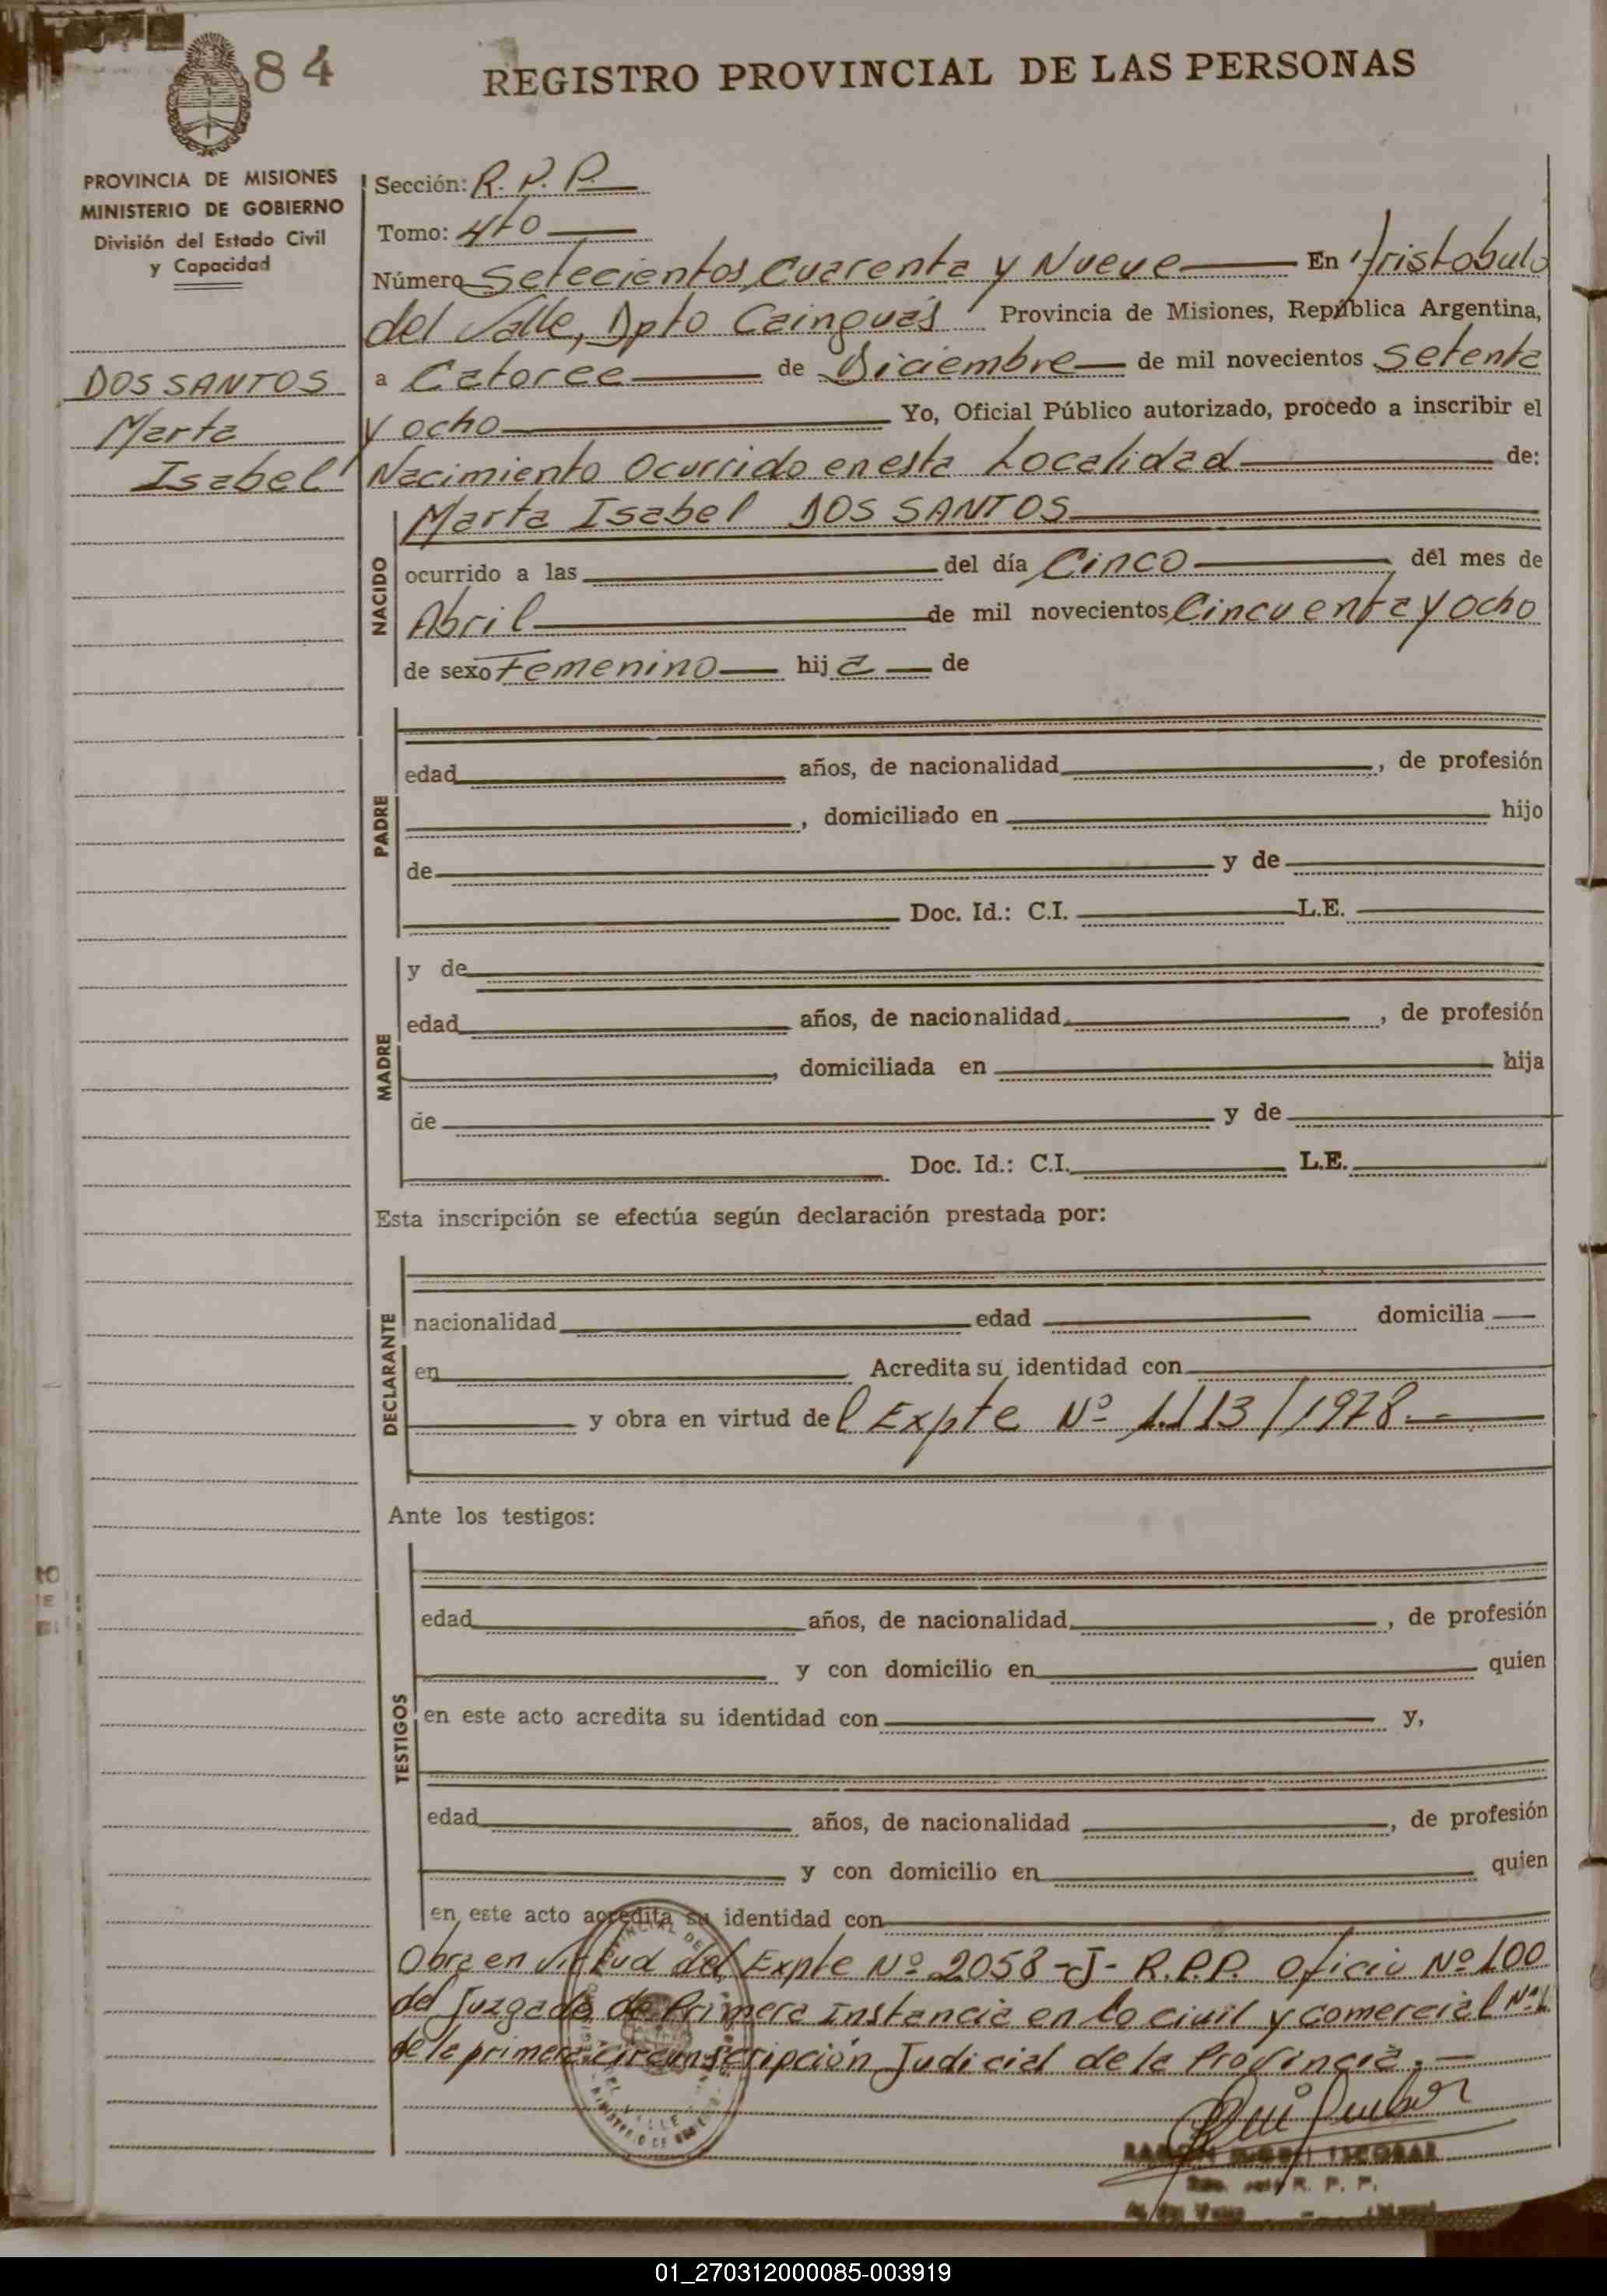 84
REGISTRO PROVINCIAL DE LAS PERSONAS
PROVINCIA DE MISIONES
MINISTERIO DE GOBIERNO
División del Estado Civil
y Capacidad
DOS SANTOS
Marta
Isabel
Sección: R. P. P.
Tomo: 4to
Número Setecientos Cuarenta y Nueve En Aristobulo
del Valle, Dpto Cainguás Provincia de Misiones, República Argentina,
a Catorce de Diciembre de mil novecientos Setenta
y ocho Yo, Oficial Público autorizado, procedo a inscribir el
Nacimiento Ocurrido en esta Localidad de:
NACIDO
Marta Isabel DOS SANTOS
ocurrido a las del día Cinco del mes de
Abril de mil novecientos Cincuenta y Ocho
de sexo Femenino hija de
PADRE
edad años, de nacionalidad , de profesión
, domiciliado en hijo
de y de
Doc. Id.: C.I. L.E.
MADRE
y de
edad años, de nacionalidad , de profesión
, domiciliada en hija
de y de
Doc. Id.: C.I. L.E.
Esta inscripción se efectúa según declaración prestada por:
DECLARANTE
nacionalidad edad domicilia
en Acredita su identidad con
y obra en virtud del Expte Nº 1.113/1978.-
Ante los testigos:
TESTIGOS
edad años, de nacionalidad , de profesión
y con domicilio en quien
en este acto acredita su identidad con y,
edad años, de nacionalidad , de profesión
y con domicilio en quien
en este acto acredita su identidad con
Obra en virtud del Expte Nº 2058-J- R.P.P. Oficio Nº 100
del Juzgado de Primera Instancia en lo civil y comercial Nº 1
de la primera circunscripción Judicial de la Provincia.-
ESCOBAR
R. P. P.
01_270312000085-003919